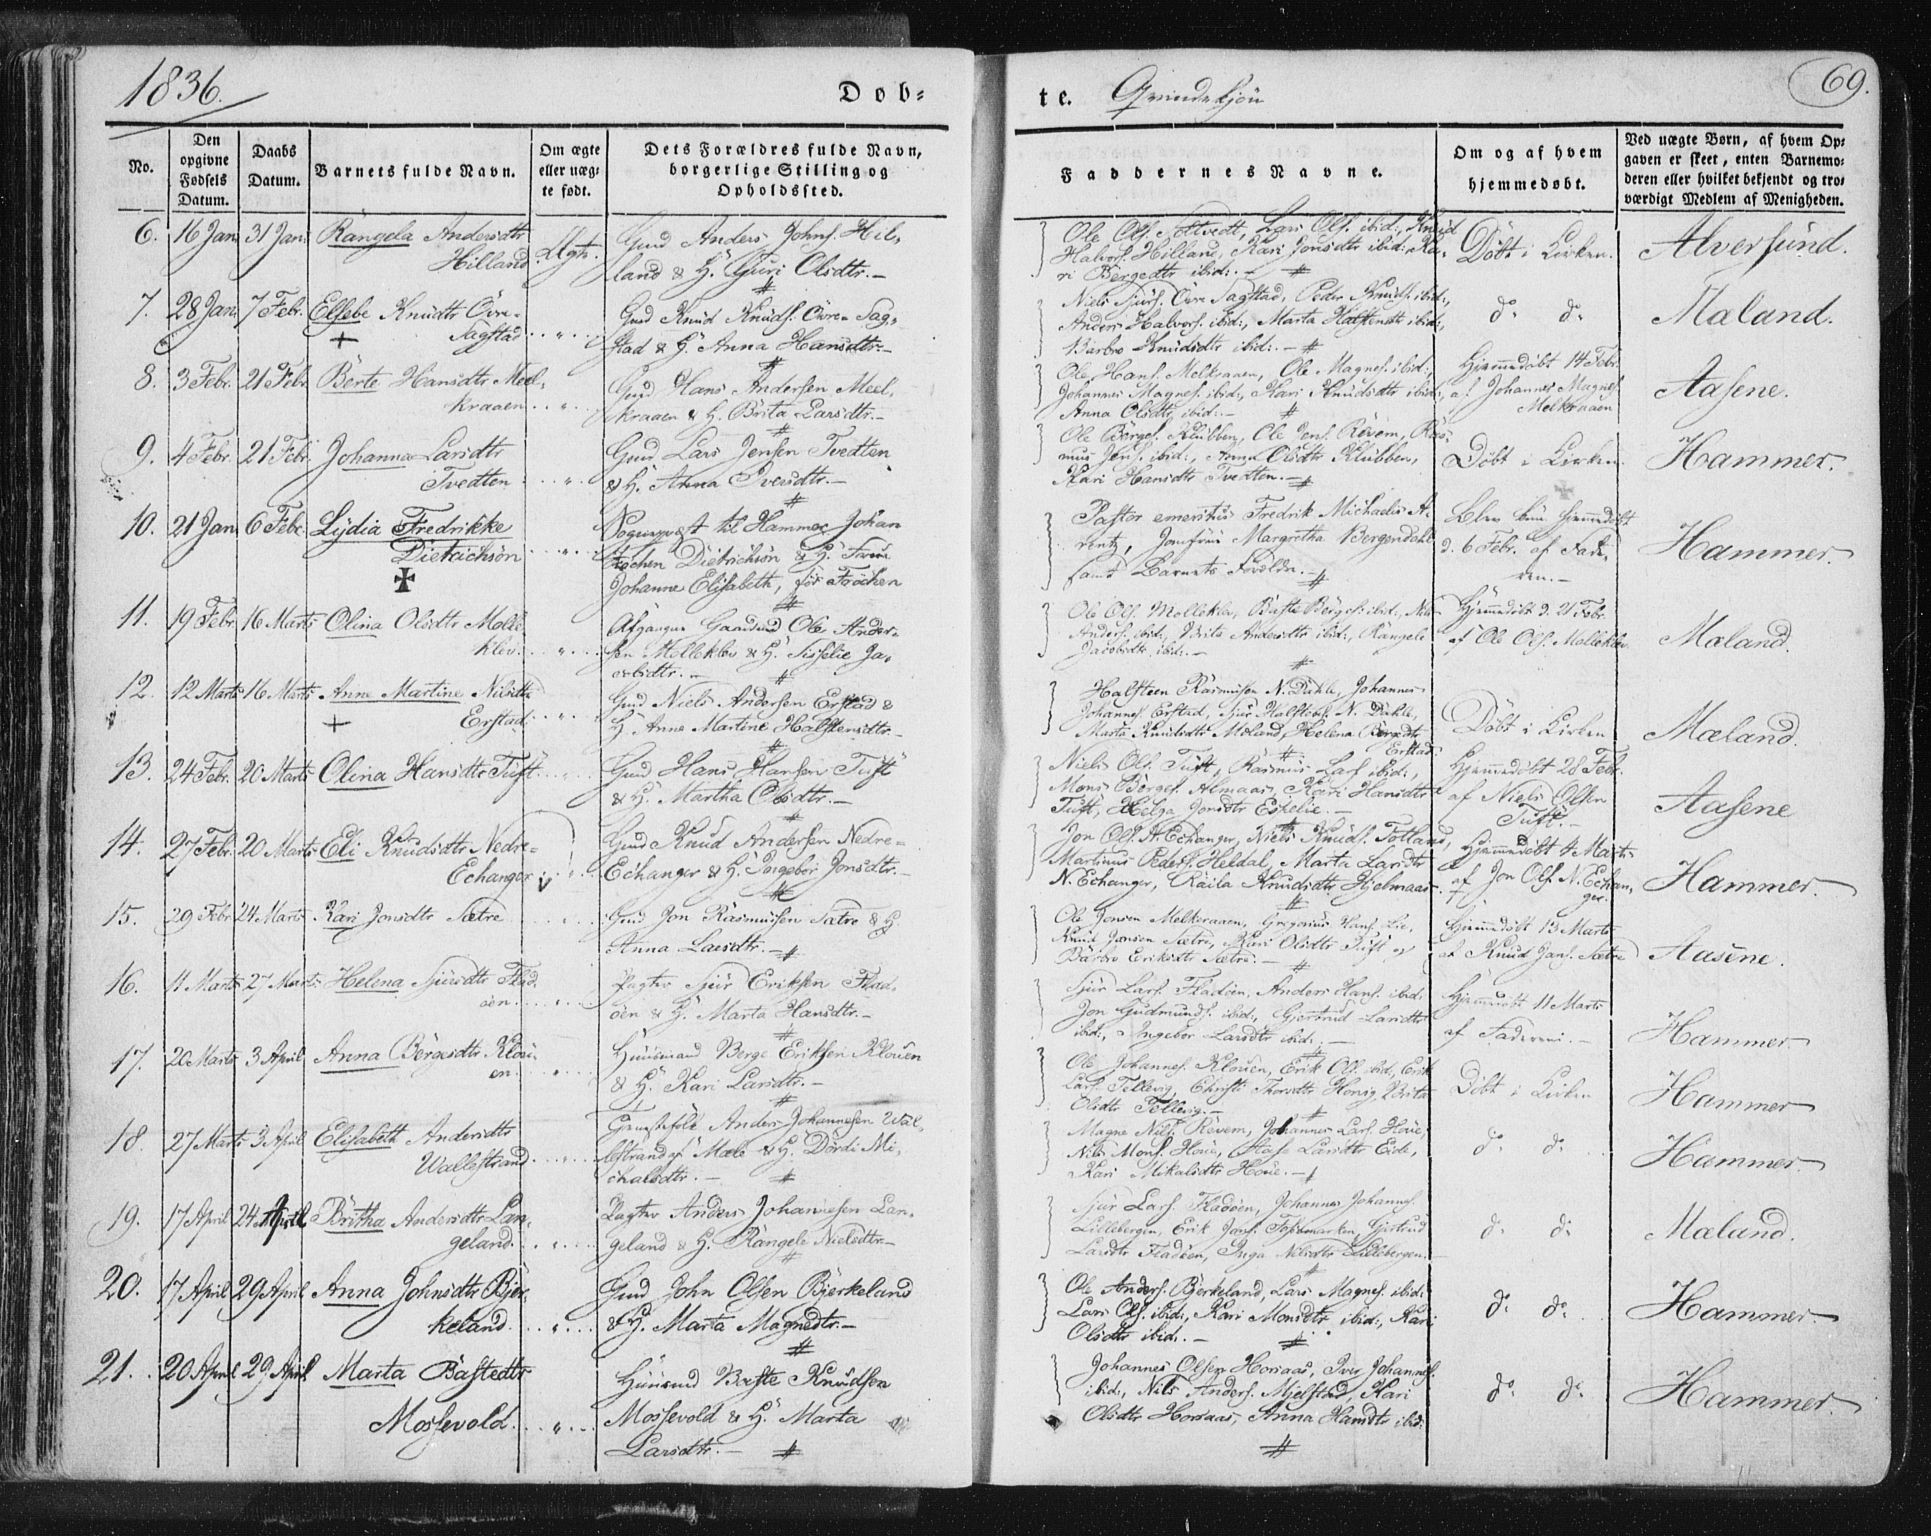 1836.
Døb-
te. Qvindekjön
69.
No.
Den opgivne Fødsels Datum.
Daabs Datum.
Barnets fulde Navn.
Om ægte eller uæg-te født.
Dets Forældres fulde Navn, borgerlige Stilling og Opholdssted.
Faddernes Navne.
Om og af hvem hjemmedøbt.
Ved uægte Børn, af hvem Op-gaven er skeet, enten Barnemo-deren eller hvilket bekjendt og tro-værdigt Medlem af Menigheden.
6. 16 Jan 31 Jan Rangela Andersdtr
Hilland
Gmd Anders Johns. Hil-
land & H. Guri Olsdtr.
Ole Ols. Lars Ols. ibid:, Knud
Halvors. Hilland, Kari Jonsdtr ibid:, Ka-
ri Bergedtr ibid:.
Döbt i Kirken.
Alversund.
7. 28 Jan. 7 Febr. Elsebe Knudtr Övre-
Sagstad
Gmd Knud Knuds. Övre Sag-
stad & H. Anna Hansdtr.
Niels Sjurs. Övre Sagstad, Peder Knuds. ibid:,
Anders Halvors. ibid:, Marta Halstendtr ibid:,
Barbro Knudsdtr ibid:.
do do
Mæland.
8. 3 Febr. 21 Febr. Berte Hansdtr Mæl-
kraaen
Gmd Hans Andersen Meel-
kraaen & H. Brita Larsdtr.
Ole Hans. Melkraaen, Ole Magnes. ibid:,
Johannes Magnes. ibid:, Kari Knudsdtr ibid:,
Anna Olsdtr ibid:.
Hjemmedöbt 14 Febr.
af Johannes Magnes.
Melkraaen
Aasene.
9. 4 Febr. 21 Febr. Johanna Larsdtr
Tvedten
Gmd Lars Jensen Tvedten
& H. Anna Iversdtr.
Ole Börges. Klubben, Ole Jens. Rövem, Ras-
mus Jens. ibid:, Anna Olsdtr Klubben,
Kari Hansdtr Tvedten.
Döbt i Kirken.
Hammer.
10. 21 Jan 6 Febr. Lydia Fredrikke
Dietrichson
Sogneprest til Hammer Johan
Dietrichson & H. Frue
Johanne Elisabeth,
Pastor emeritus Fredrik Michaelis A-
rentz, Jomfrue Margretha Bergendahl
samt Barnets Forældre.
Blev kun hjemmedöbt
d. 6 Febr. af Fade-
ren.
Hammer.
11. 19 Febr 16 Marts Olina Olsdtr Molle-
klev
Afgangne Gaardmd Ole Ander-
sen Molleklev & H. Sisselie Ja-
cobsdtr.
Ole Ols. Molleklev, Baste Börges. ibid:, Nils
Anders. ibid:, Brita Andersdtr ibid:, Rangele
Jacobsdtr ibid:.
Hjemmedöbt d. 21 Febr.
af Ole Ols. Molleklev.
Mæland.
12. 12 Marts 16 Marts Anne Martine Nilsdtr
Erstad
Gmd Niels Andersen Erstad &
H. Anne Martine Halstensdtr.
Halsteen Rasmusen N. Dahle, Johannes
Johannes. Erstad, Sjur Halstens. N. Dahle,
Marta Knudsdtr Mæland, Helena Börgedtr
Erstad
Döbt i Kirken
Mæland.
13. 24 Febr. 20 Marts Olina Hansdtr Tuft
Gmd Hans Hansen Tuft
& H. Martha Olsdtr.
Niels Ols. Tuft, Rasmus Lars. ibid:,
Mons Börges. Almaas, Kari Hansdtr
Tuft, Helga Jonsdtr Eskelie.
Hjemmedöbt 28 Febr.
af Niels Olsen
Tuft.
Aasene
14. 27 Febr. 20 Marts Eli Knudsdtr Nedre-
Echanger
Gmd Knud Andersen Nedre-
Echanger & H. Ingebor Jonsdtr.
Jon Ols. N. Echanger, Niels Knuds. Totland,
Martinus Peders. Heldal, Marta Larsdtr
N. Echanger, Raila Knudsdtr Hjelmaas
Hjemmedöbt 4 Marts
af Jon Ols. N. Echan-
ger.
Hammer.
15. 29 Febr 24 Marts Kari Jonsdtr Sætre
Gmd Jon Rasmussen Sætre & H.
Anna Larsdtr.
Ole Jensen Melkeraaen, Gregorius Hans. Lie,
Knud Jansen Sætre, Kari Olsdtr Tuft og
Barbro Eriksdtr Sætre.
Hjemmedöbt 13 Marts
af Knud Jans. Sætre
Aasene.
16. 11 Marts 27 Marts Helena Sjursdtr Flad-
öen
Pagter Sjur Eriksen Flad-
öen & H. Marta Hansdtr.
Sjur Lars. Fladöen, Anders Hans. ibid:
Jon Gudmunds. ibid:, Gjertrud Larsdtr
ibid:, Ingebor Larsdtr ibid:
Hjemmedöbt 11 Marts
af Faderen.
Hammer
17. 20 Marts 3 April Anna Börgesdtr Klou-
en
Huusmand Berge Eriksen Klouen
& H. Kari Larsdtr.
Ole Johannes. Klouen, Erik Ols. ibid, Erik
Lars. Tellevig, Christi Thorsdtr Hovig, Brita
Olsdtr Tellevig.
Döbt i Kirken
Hammer
18. 27 Marts 3 April Elisabeth Andersdtr
Wallestrand
Anders Johannesen Wal-
lestrand & H. Dordi Mi-
chalsdtr.
Magne Nils. Revem, Johannes Lars. Houe,
Nils Mons. Houe, Larsdtr Eide,
Kari Mikalsdtr Houe.
do do
Hammer.
19. 17 April 24 April Britha Andersdtr Lan-
geland.
Pagter Anders Johannesen Lan-
geland & H. Rangele Nielsdtr
Sjur Lars. Fladöen, Johannes Johannes.
Lillebergen, Erik Jons. Gjertrud
Larsdtr Fladöen, Inga Nilsdtr Lillebergen.
do do
Mæland.
20. 17 April 29 April Anna Johnsdtr Bjer-
keland.
Gmd John Olsen Bjerkeland
& H. Marta Magnedtr.
Ole Anders. Bjerkeland, Lars Magnes. ibid:
Lars Ols. ibid:, Kari Monsdtr ibid:, Kari
Olsdtr ibid:.
do do
Hammer.
21. 20 April 29 April Marta Bastedtr
Mossevold.
Huusmd Baste Knudsen
Mossevold & H. Marta
Larsdtr.
Johannes Olsen Horsaas, Iver Johannes.
ibid:, Nils Anders. Mjelstad, Kari
Olsdtr Horsaas, Anna Hansdtr ibid:
do do
Hammer.